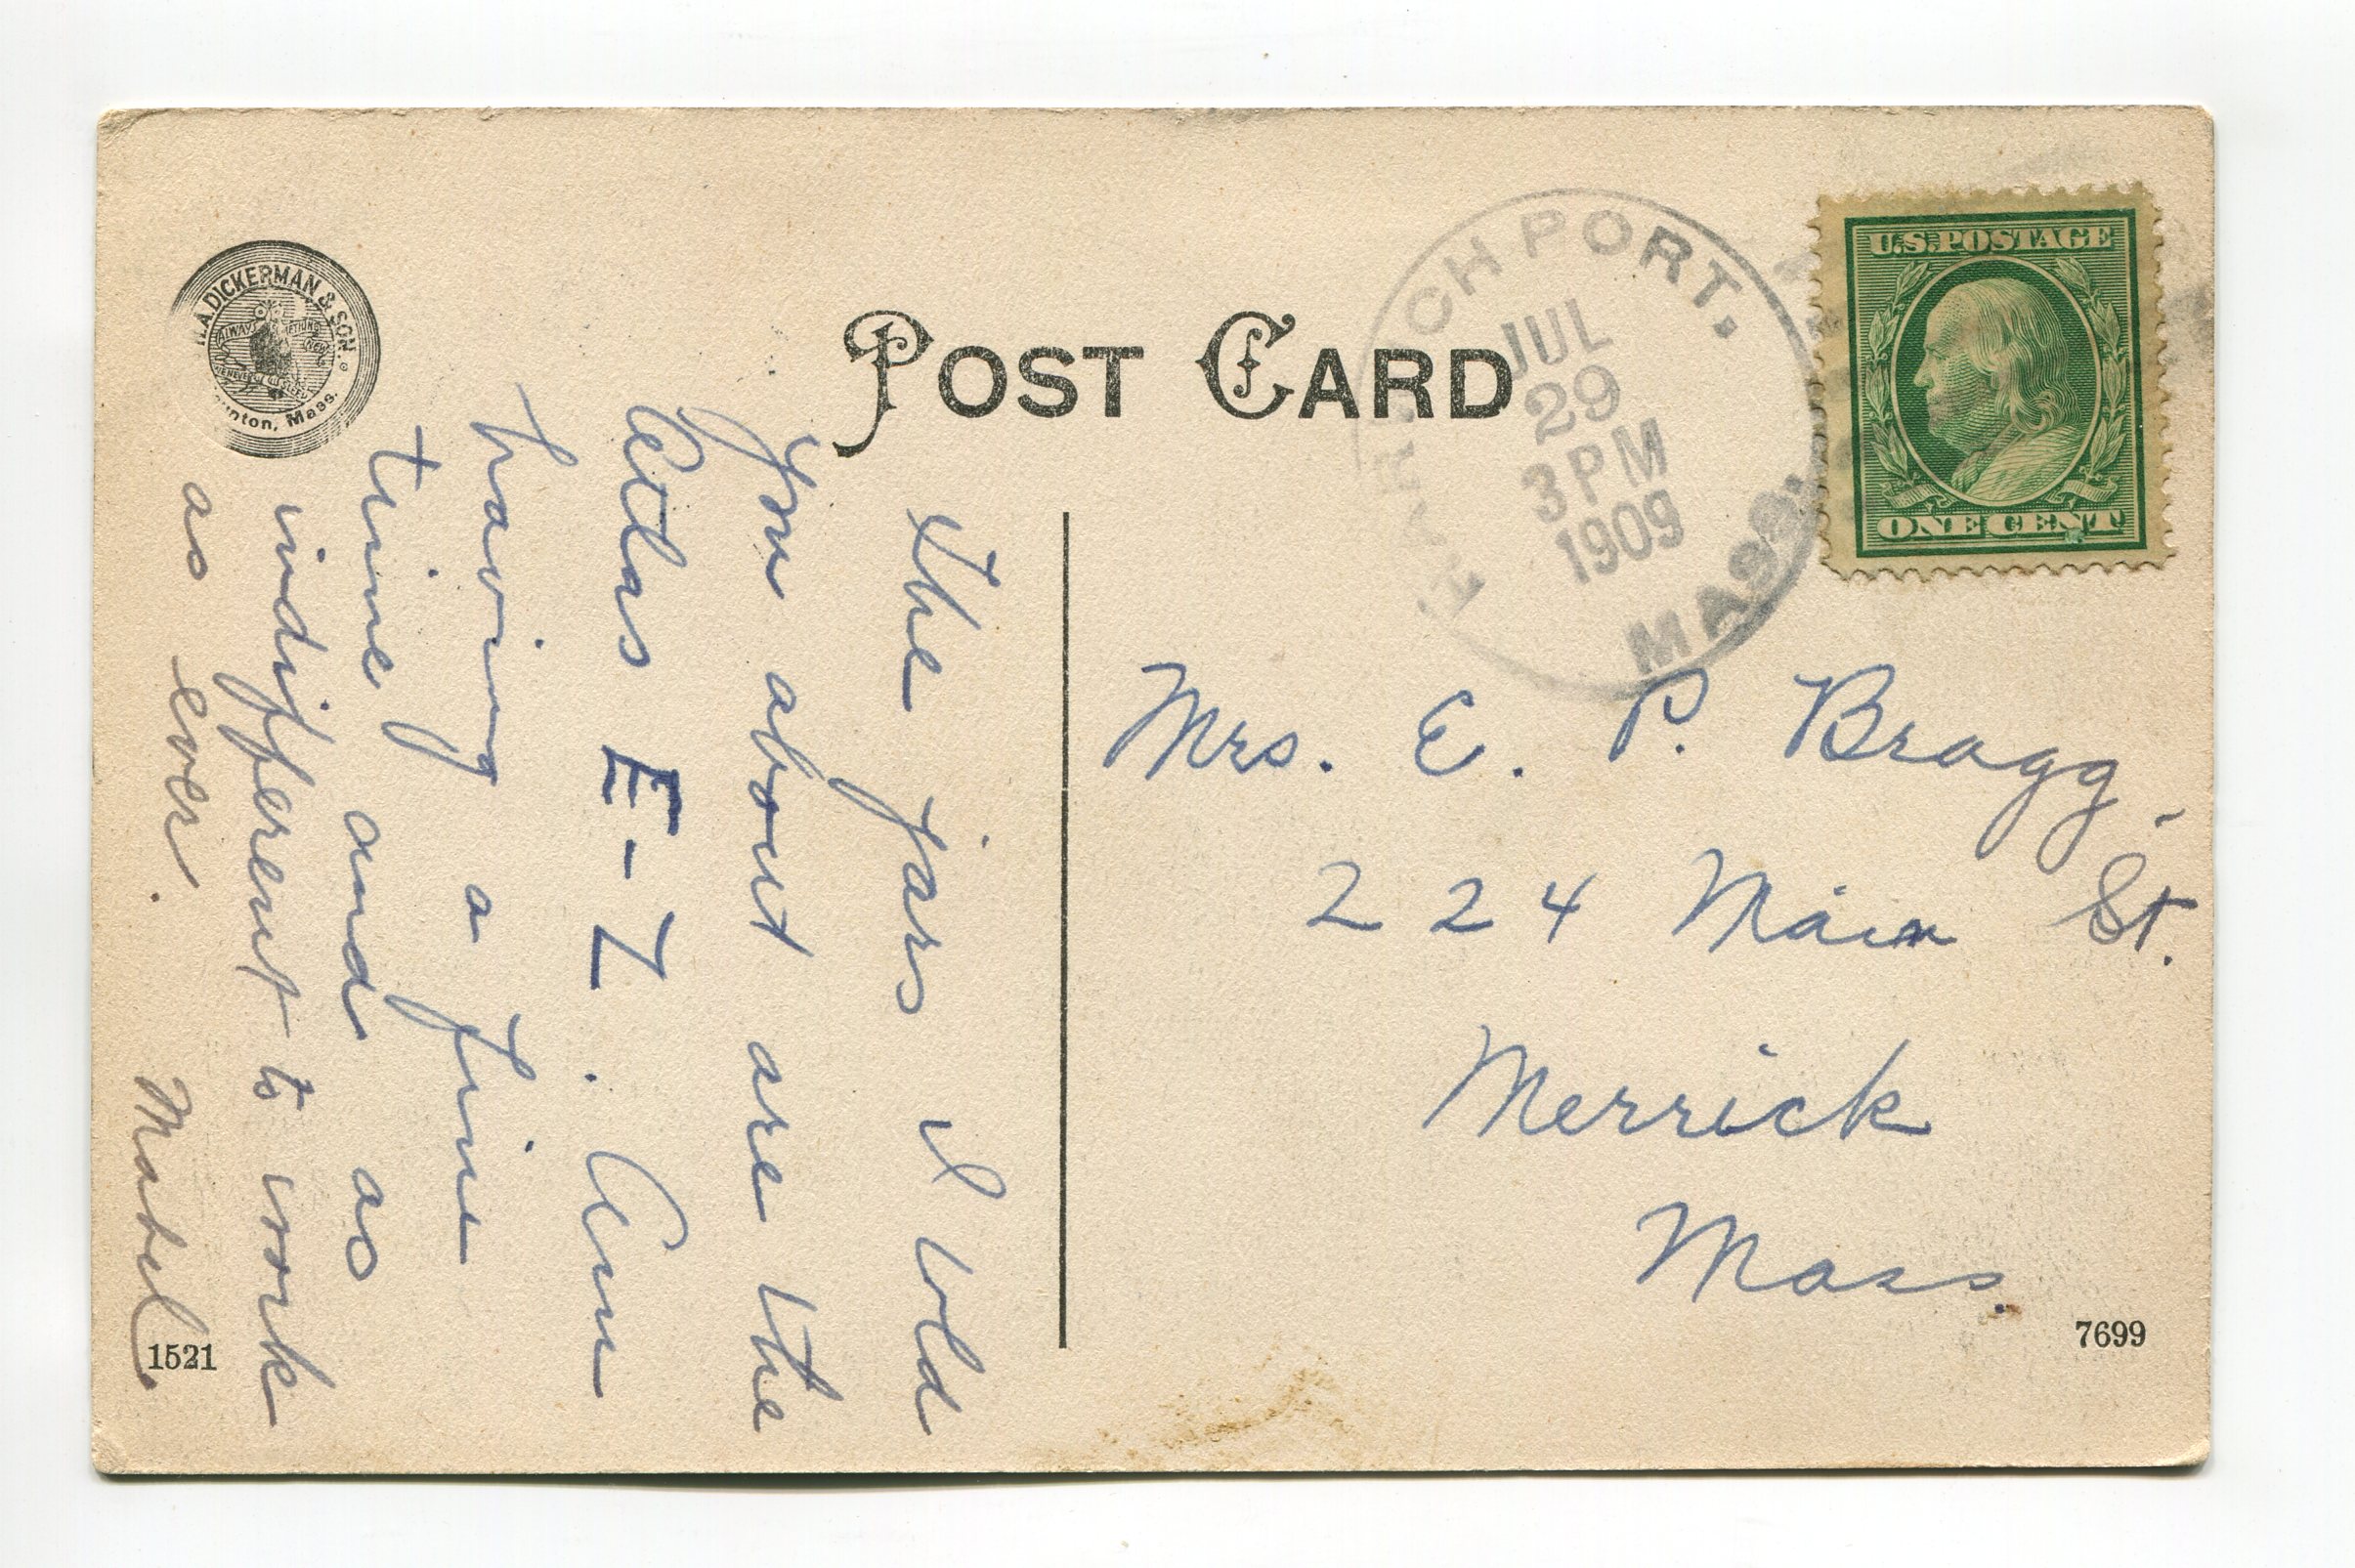 H.A. DICKERMAN & SON.
Taunton, Mass.
ALWAYS
NEW
POST CARD
HARWICHPORT,
JUL
29
3 PM
1909
MASS.
U.S. POSTAGE
ONE CENT
Mrs. E. P. Bragg,
224 Main St.
Merrick
Mass.
The jars I told
you about are the
Atlas E-Z. Am
having a fine
time and as
indifferent to work
as ever. Mabel.
1521
7699